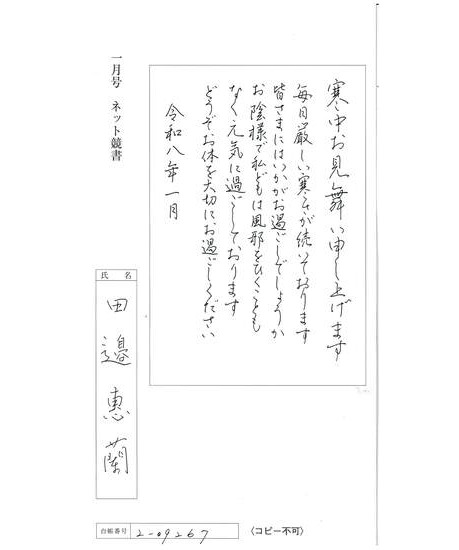 寒中お見舞い申し上げます
毎日厳しい寒さが続いております
皆さまにはいかがお過ごしでしょうか
お陰様で私どもは風邪をひくことも
なく元気に過ごしております
どうぞお体を大切にお過ごしください
令和八年一月
一月号 ネット競書
氏名
田邉惠蘭
台帳番号 2-09267
〈コピー不可〉